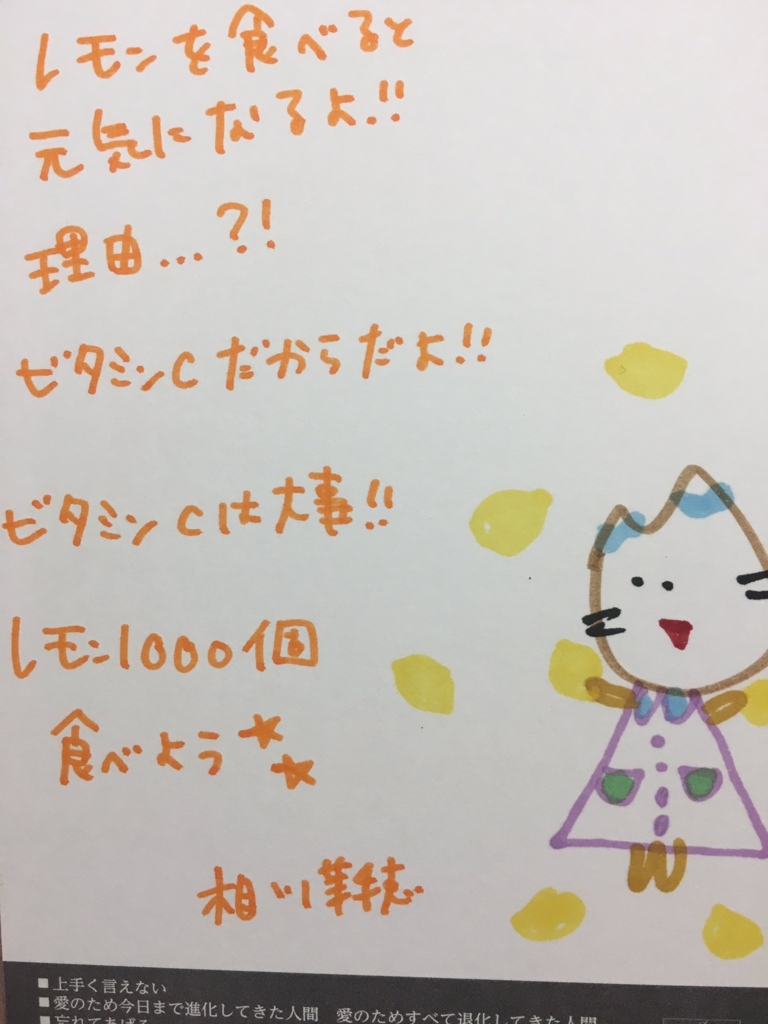 レモンを食べると
元気になるよ!!
理由…?!
ビタミンCだからだよ!!
ビタミンCは大事!!
レモン1000個
食べよう☆☆
相川
■上手く言えない
■愛のため今日まで進化してきた人間 愛のためすべて退化してきた人間
■忘れてあげる